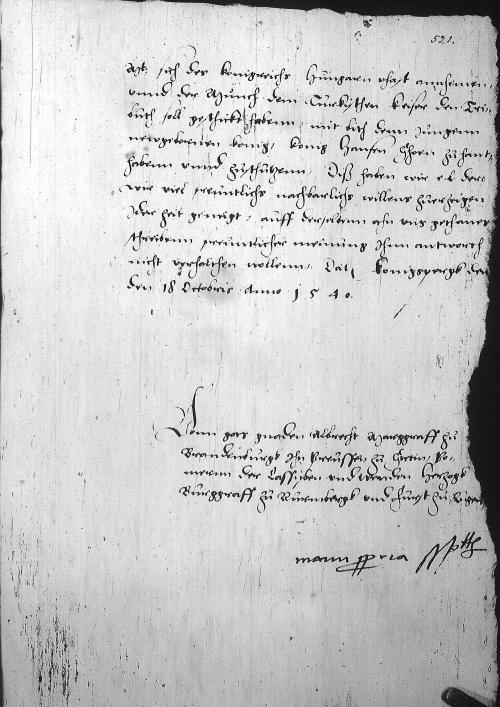 521.
sich des konigreichs Hungarn vhast annhemen,
vnnd der Munch dem Turkischen keiser den Tri-
buth soll geschickt habenn, mit bith denn Jungenn
newgebornen konig, konig Hansen Shon zu hant
habenn vnnd zuschutzenn, Diß haben wir e l der
wir viel freuntlichs nachbarlichs willens zuerzeigen
Jder zeit geneigt, auff derselbenn ahn vns gethanes
schreibenn freuntlicher meinung Jhnn antworth
nicht verhalthen wollenn, Dat, konigspergk den
den 18 Octobris Anno 1540.
Vonn gots gnaden Albrecht Marggraff zu
Brandenburgk Jn Preussen zu Stetin, Po-
mernn der Cassuben vnd Wenden Hertzogk
Burggraff zu Nurembergk vnd Furst zu Rugen
manu ppria sspt